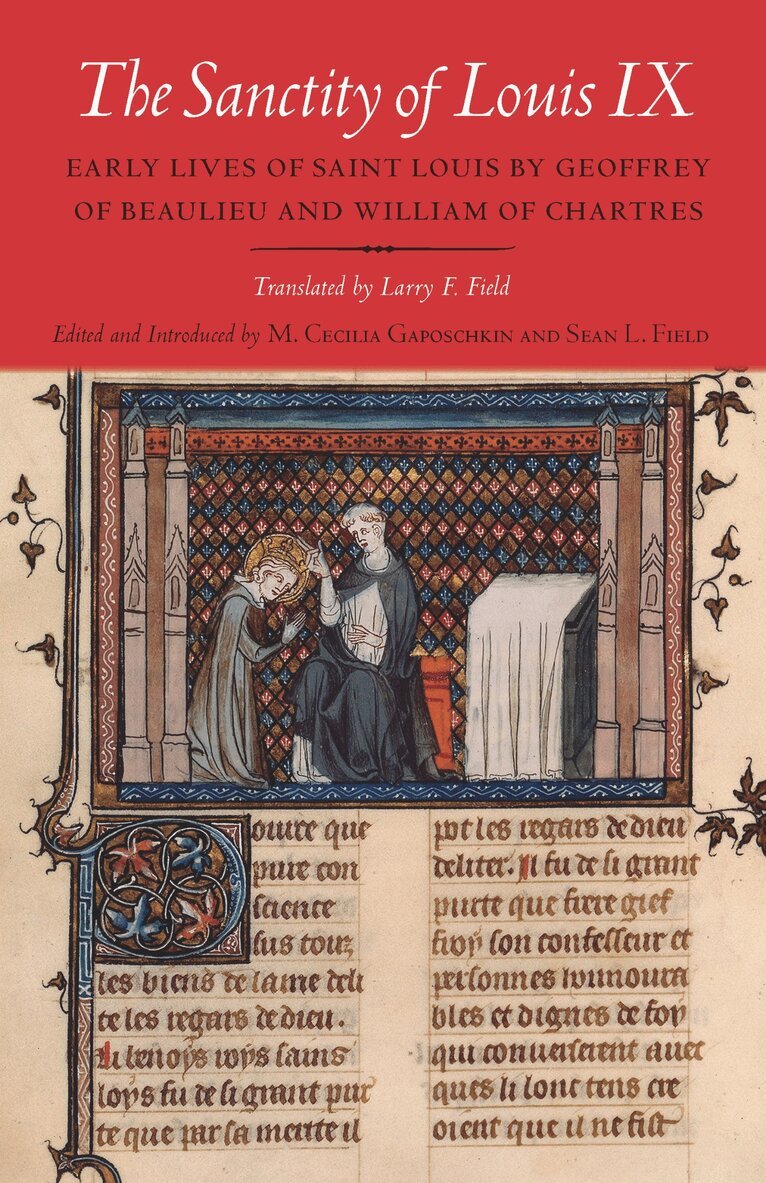 The Sanctity of Louis IX
EARLY LIVES OF SAINT LOUIS BY GEOFFREY
OF BEAULIEU AND WILLIAM OF CHARTRES
Translated by Larry F. Field
Edited and Introduced by M. CECILIA GAPOSCHKIN AND SEAN L. FIELD
ource que
pure con
science
sus touz
les biens de lame deli
te les regars de dieu.
Li benoys roys sains
loys fu de si grant pur
te que par sa merite il
pot les regars de dieu
deliter. Il fu de si grant
purte que frere gief
froy son confesseur et
personnes honnoura
bles et dignes de foy
qui converserent avec
ques li lonc tens cre
oient que il ne fist